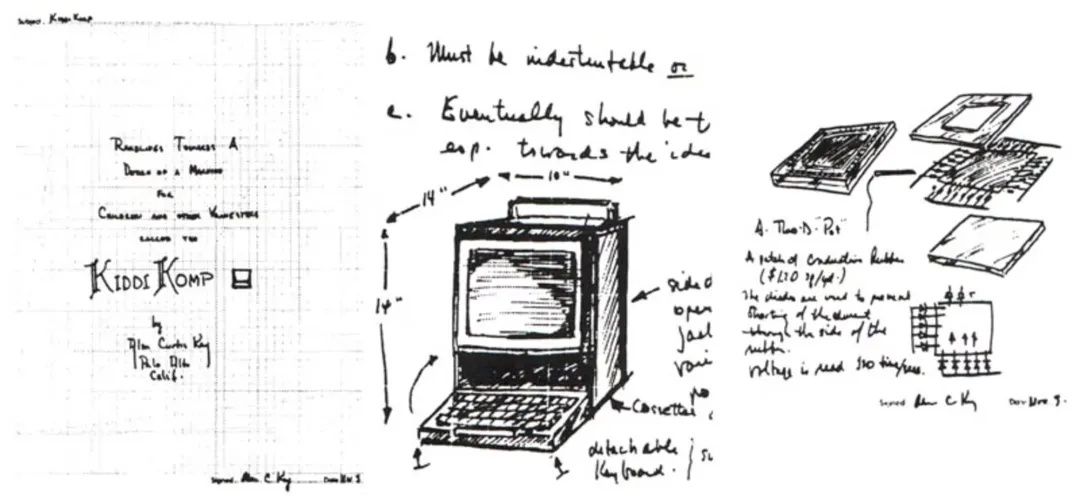 KIDDI KOMP
RAMBLINGS TOWARDS A
DESIGN OF A MACHINE
FOR
CHILDREN AND OTHER
CALLED THE
KIDDI KOMP
by
Alan Curtis Kay
Palo Alto
Calif.
Alan C Kay
b. Must be indestructable or
c. Eventually should be
esp. towards the
14"
10"
14"
side
open
jack
Cassettes
detachable
Keyboard.
A. "Pot"
A patch of conductive Rubber
The diodes are used to prevent
shorting of the current
through the side of the
rubber.
voltage is read
Alan C Kay